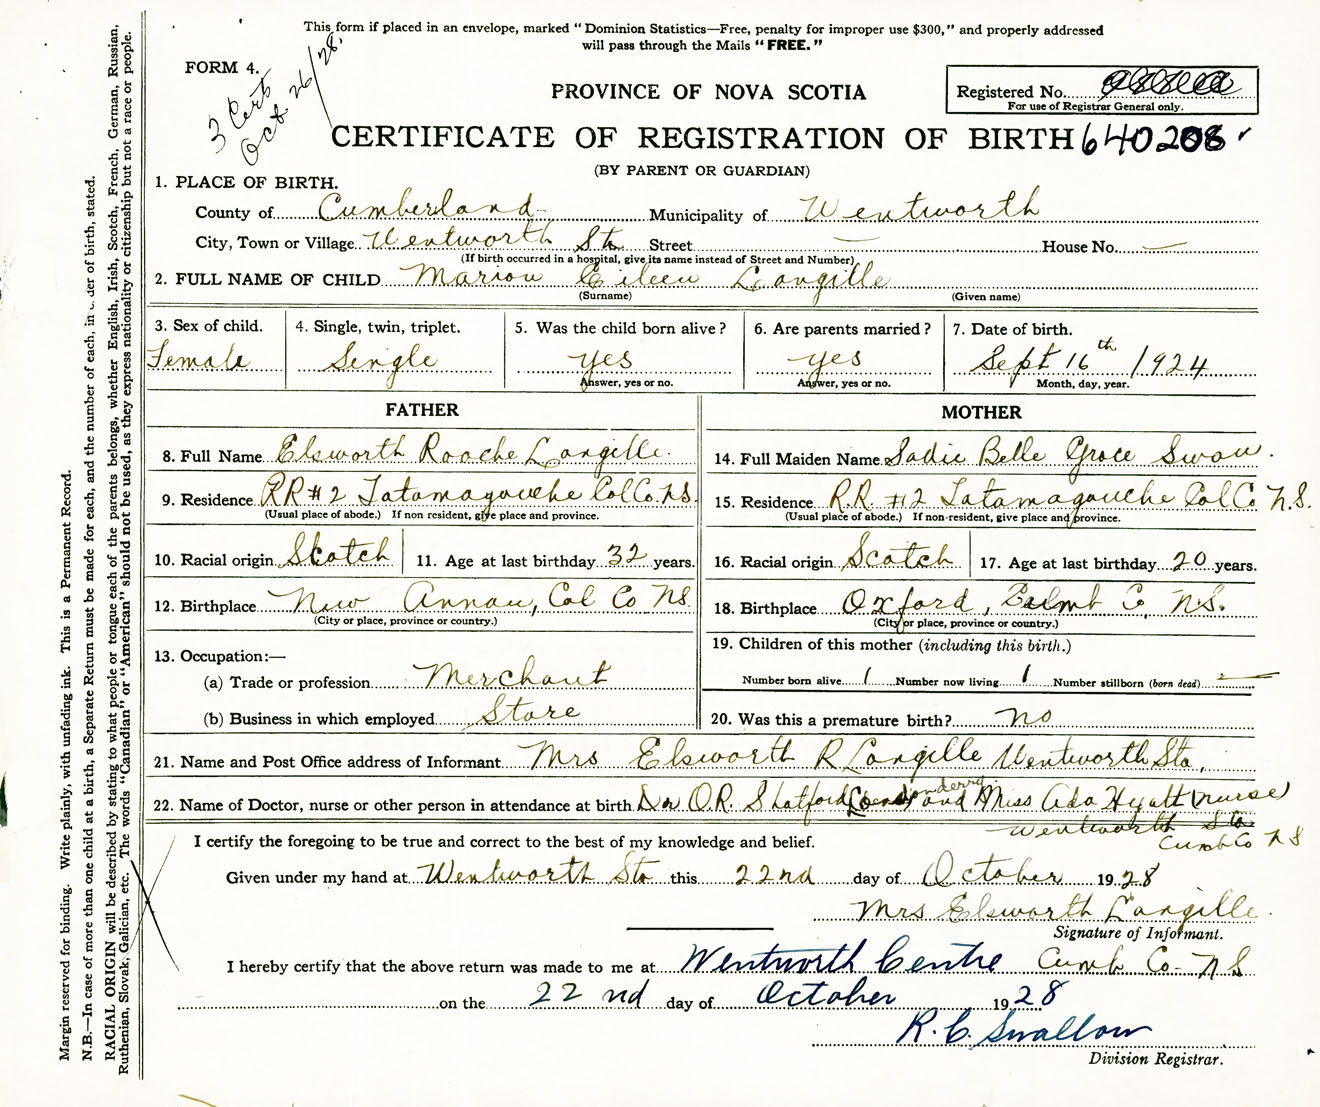 This form if placed in an envelope, marked "Dominion Statistics—Free, penalty for improper use $300," and properly addressed
will pass through the Mails "FREE."
FORM 4.
3 Cert
Oct 26/28.
PROVINCE OF NOVA SCOTIA
Registered No.
For use of Registrar General only.
CERTIFICATE OF REGISTRATION OF BIRTH 640208
(BY PARENT OR GUARDIAN)
1. PLACE OF BIRTH.
County of Cumberland Municipality of Wentworth
City, Town or Village Wentworth Sta Street — House No. —
(If birth occurred in a hospital, give its name instead of Street and Number)
2. FULL NAME OF CHILD Marion Eileen Langille
(Surname) (Given name)
3. Sex of child. 4. Single, twin, triplet. 5. Was the child born alive? 6. Are parents married? 7. Date of birth.
Female Single yes yes Sept 16th 1924
Answer, yes or no. Answer, yes or no. Month, day, year.
FATHER MOTHER
8. Full Name Elsworth Roache Langille 14. Full Maiden Name Sadie Belle Grace Swan.
9. Residence RR#2 Tatamagouche Col Co. N.S. 15. Residence R.R. #2 Tatamagouche Col Co N.S.
(Usual place of abode.) If non resident, give place and province. (Usual place of abode.) If non-resident, give place and province.
10. Racial origin Scotch 11. Age at last birthday 32 years. 16. Racial origin Scotch 17. Age at last birthday 20 years.
12. Birthplace New Annan, Col Co NS 18. Birthplace Oxford, Cumb Co, N.S.
(City or place, province or country.) (City or place, province or country.)
19. Children of this mother (including this birth.)
13. Occupation:—
(a) Trade or profession Merchant Number born alive 1 Number now living 1 Number stillborn (born dead) —
(b) Business in which employed Store 20. Was this a premature birth? no
21. Name and Post Office address of Informant Mrs Elsworth R Langille Wentworth Sta,
22. Name of Doctor, nurse or other person in attendance at birth Dr O.R. Shatford Londonderry and Miss Ada Hyatt (nurse)
Wentworth Sta
Cumb Co N S
I certify the foregoing to be true and correct to the best of my knowledge and belief.
Given under my hand at Wentworth Sta this 22nd day of October 1928
Mrs Elsworth Langille.
Signature of Informant.
I hereby certify that the above return was made to me at Wentworth Centre Cumb Co- N S
on the 22 nd day of October 1928
R. C. Swallow
Division Registrar.
Margin reserved for binding. Write plainly, with unfading ink. This is a Permanent Record.
N.B.—In case of more than one child at a birth, a Separate Return must be made for each, and the number of each, in order of birth, stated.
RACIAL ORIGIN will be described by stating to what people or tongue each of the parents belongs, whether English, Irish, Scotch, French, German, Russian,
Ruthenian, Slovak, Galician, etc. The words "Canadian" or "American" should not be used, as they express nationality or citizenship but not a race or people.